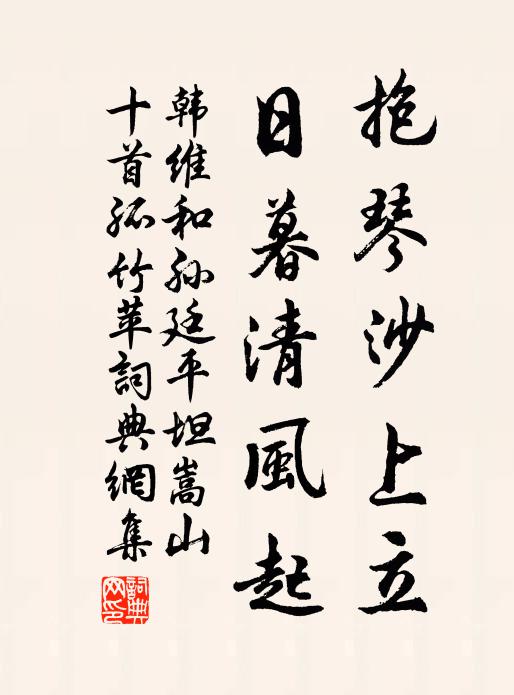 抱琴沙上立
日暮清風起
韩維和孙廷平坦嵩山
十首孤竹苹詞典網集
詞典
网